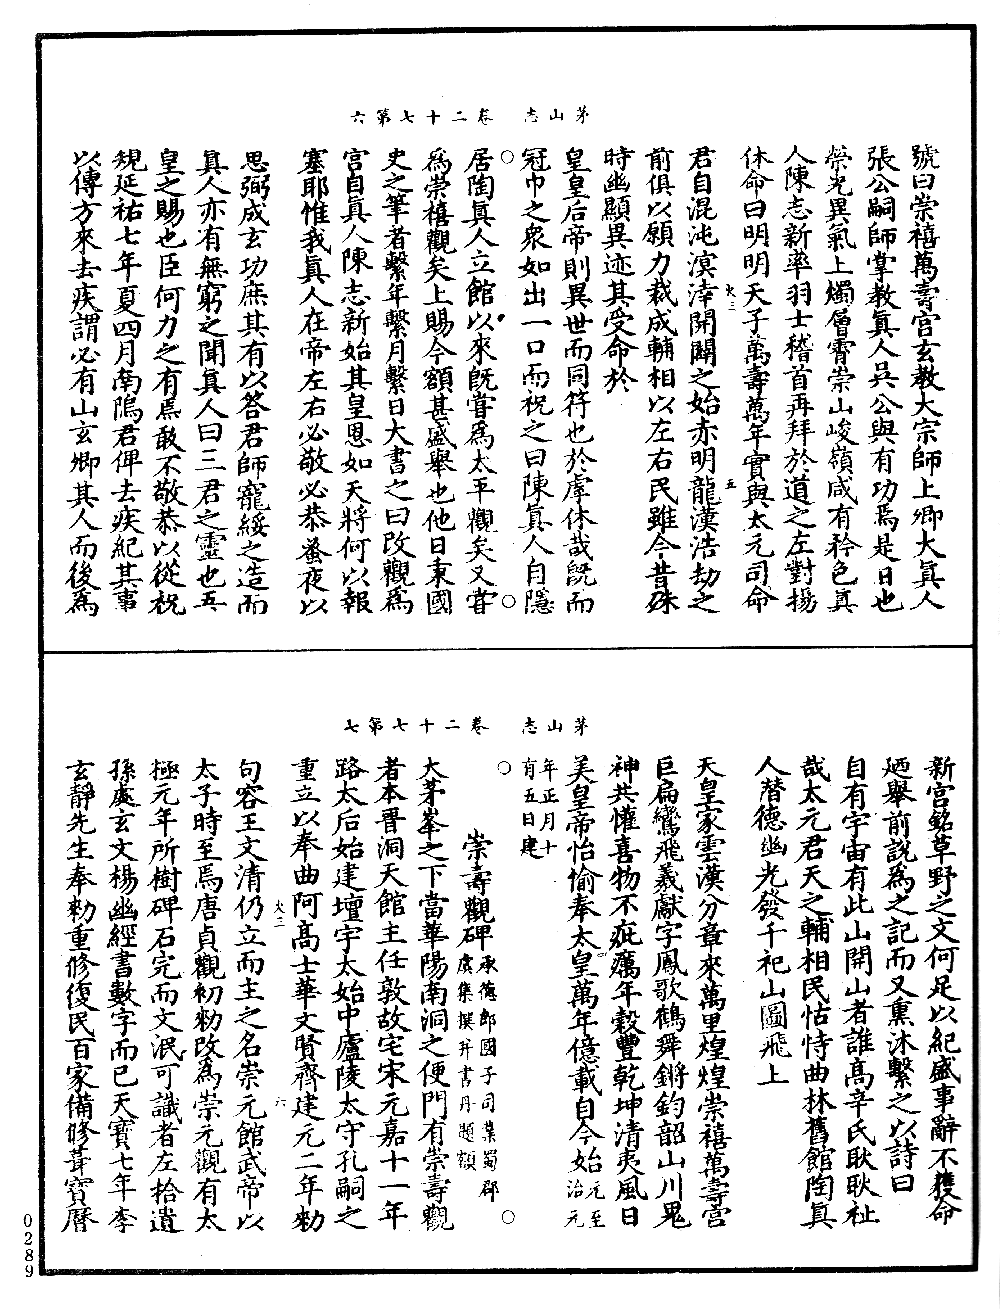 茅山志　卷二十七第六
號曰崇禧萬壽宮玄教大宗師上卿大真人
張公嗣師掌教真人吳公與有功焉是日也
榮光異氣上燭層霄崇山峻嶺咸有矜色真
人陳志新率羽士稽首再拜於道之左對揚
休命曰明明天子萬壽萬年實與太元司命
火三　五
君自混沌溟涬開闢之始赤明龍漢浩劫之
前俱以願力裁成輔相以左右民雖今昔殊
時幽顯異迹其受命於
皇皇后帝則異世而同符也於虖休哉旣而
冠巾之衆如出一口而祝之曰陳真人自隱
居陶真人立館以來旣嘗爲太平觀矣又嘗
爲崇禧觀矣上賜今額甚盛舉也他日東國
史之筆者繫年繫月繫日大書之曰改觀爲
宮自真人陳志新始其皇恩如天將何以報
塞耶惟我真人在帝左右必敬必恭蚤夜以
思弼成玄功庶其有以答君師寵綏之造而
真人亦有無窮之聞真人曰三君之靈也五
皇之賜也臣何力之有焉敢不敬恭以從祝
規延祐七年夏四月南鄔君俾去疾紀其事
以傳方來去疾謂必有山玄卿其人而後爲
茅山志　卷二十七第七
新宮銘草野之文何足以紀盛事辭不獲命
廼舉前說爲之記而又熏沐繫之以詩曰
自有宇宙有此山開山者誰高辛氏耿耿祉
哉太元君天之輔相民怙恃曲林舊館陶真
人潛德幽光發千祀山圖飛上
天皇家雲漢分章來萬里煌煌崇禧萬壽宮
巨扁鸞飛羲獻字鳳歌鶴舞鏘鈞韶山川鬼
神共懽喜物不疵癘年穀豐乾坤清夷風日
美皇帝怡愉奉太皇萬年億載自今始元至治元
年正月十
有五日建
崇壽觀碑承德郎國子司業蜀郡虞集撰并書丹題額
大茅峯之下當華陽南洞之便門有崇壽觀
者本晋洞天館主任敦故宅宋元嘉十一年
路太后始建壇宇太始中廬陵太守孔嗣之
重立以奉曲阿高士華文賢齊建元二年勑
火三　六
句容王文清仍立而主之名崇元館武帝以
太子時至焉唐貞觀初勑改爲崇元觀有太
極元年所樹碑石完而文泯可識者左拾遺
孫處玄文楊幽經書數字而已天寶七年李
玄靜先生奉勑重修復民百家備修葺寶曆
0289